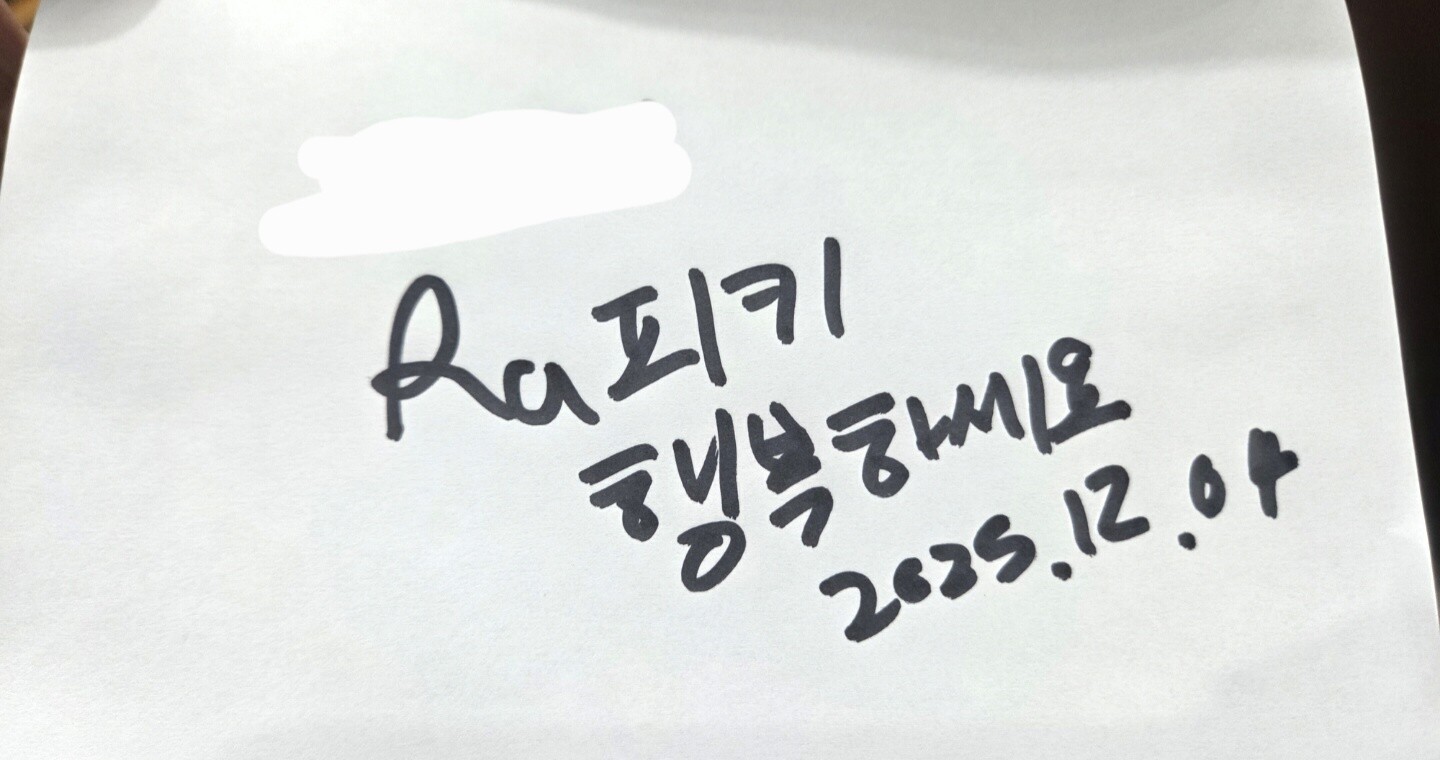 Ra피키
행복하세요
2025.12.04